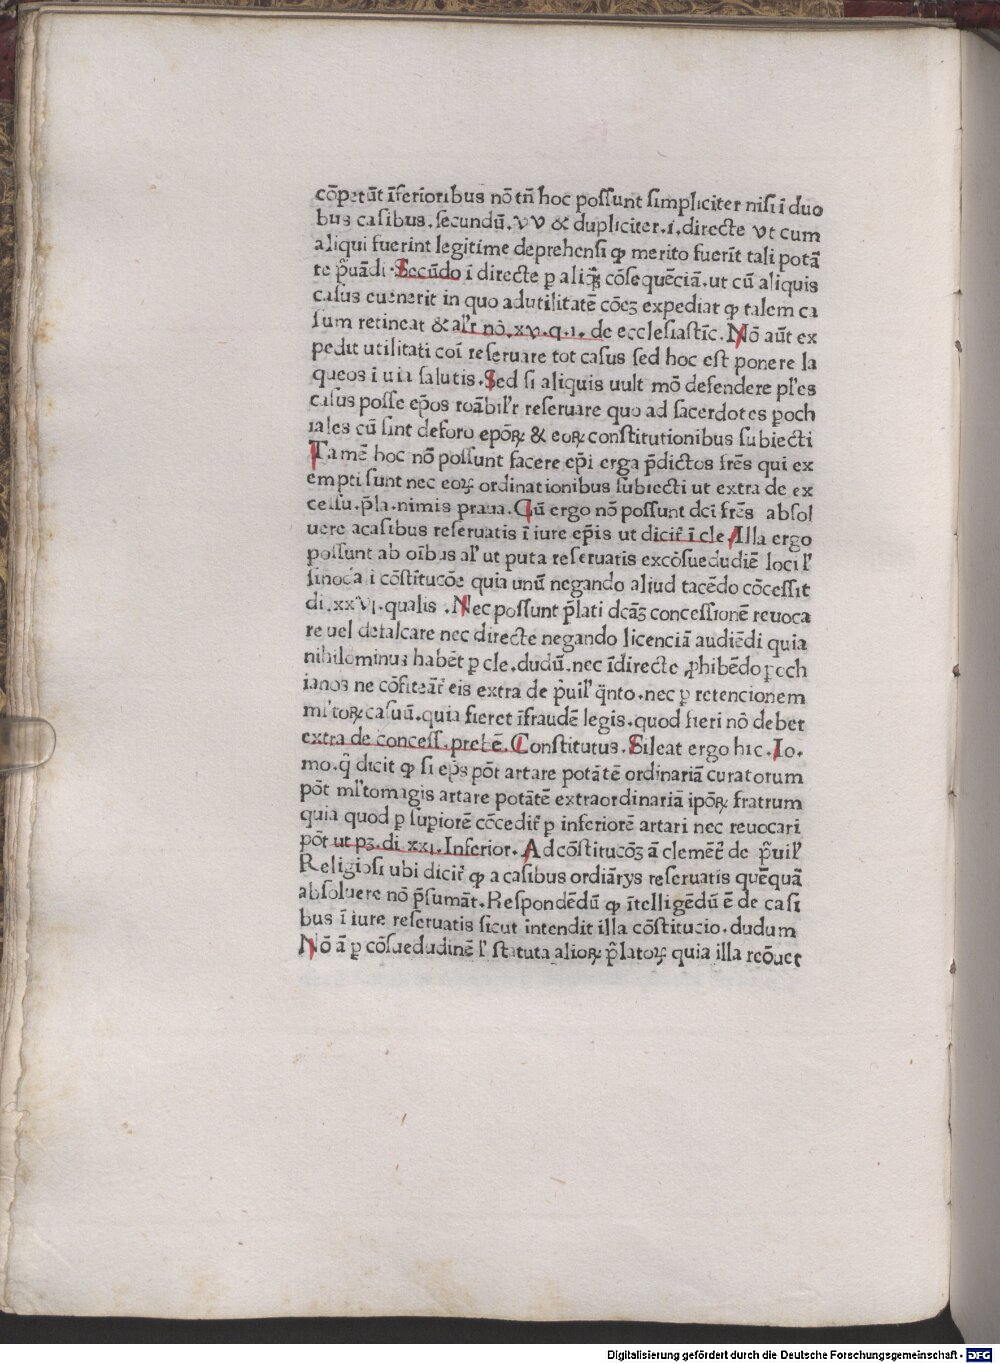 cōpetūt īferioribus nō tñ hoc possunt simpliciter nisi ī duo
bus casibus. secundū. VV & dupliciter .i. directe vt cum
aliqui fuerint legitime deprehensi ꝙ merito fuerīt tali potā
te p̄uādi . Secūdo ī directe ꝑ aliq̄ꝫ cōsequēciā. ut cū aliquis
casus euenerit in quo adutilitatē cōeꝫ expediat ꝙ talem ca
sum retineat & al'r nō. xv. q. i. de ecclesiastīc. Nō aūt ex
pedit utilitati coī reseruare tot casus sed hoc est ponere la
queos ī uia salutis. Sed si aliquis uult mō defendere pl'es
casus posse ep̄os roābil'r reseruare quo ad sacerdotes ꝑoch
iales cū sint deforo epōꝝ & eoꝝ constitutionibus subiecti
Tamē hoc nō possunt facere ep̄i erga p̄dictos frēs qui ex
empti sunt nec eoꝝ ordinationibus subiecti ut extra de ex
cessu. p̄la. nimis praua. Cū ergo nō possunt dci frēs absol
uere acasibus reseruatis ī iure ep̄is ut dicir̄ ī cle Illa ergo
possunt ab oībus al' ut puta reseruatis excōsuedudiē loci l'
sinoda i cōstitucōe quia unū negando aliud tacēdo cōcessit
di. xxVI. qualis . Nec possunt p̄lati dcāꝫ concessionē reuoca
re uel defalcare nec directe negando licenciā audiēdi quia
nihilominus habēt ꝑ cle. dudū. nec īdirecte ꝓhibēdo ꝑoch
ianos ne cōfiteār̄ eis extra de p̄uil' q̄nto. nec ꝑ retencionem
ml'toꝝ casuū. quia fieret īfraudē legis. quod fieri nō debet
extra de concess. prebē. Constitutus. Sileat ergo hic. Io.
mo. q̄ dicit ꝙ si ep̄s pōt artare potātē ordinariā curatorum
pōt ml'tomagis artare potātē extraordinariā ipōꝝ fratrum
quia quod ꝑ supiorē cōcedir̄ ꝑ inferiorē artari nec reuocari
pōt ut pꝫ. di. xxI. Inferior. Ad cōstitucōꝫ ā clemēt̄ de p̄uil'
Religiosi ubi dicir̄ ꝙ a casibus ordiārys reseruatis quēquā
absoluere nō p̄sumāt. Respondēdū ꝙ ītelligēdū ē de casi
bus ī iure reseruatis sicut intendit illa cōstitucio. dudum
Nō ā ꝑ cōsuedudinē l' statuta alioꝝ p̄latoꝝ quia illa reōuet
Digitalisierung gefördert durch die Deutsche Forschungsgemeinschaft - DFG